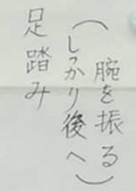 （腕を振る
しっかり後へ）
足踏み